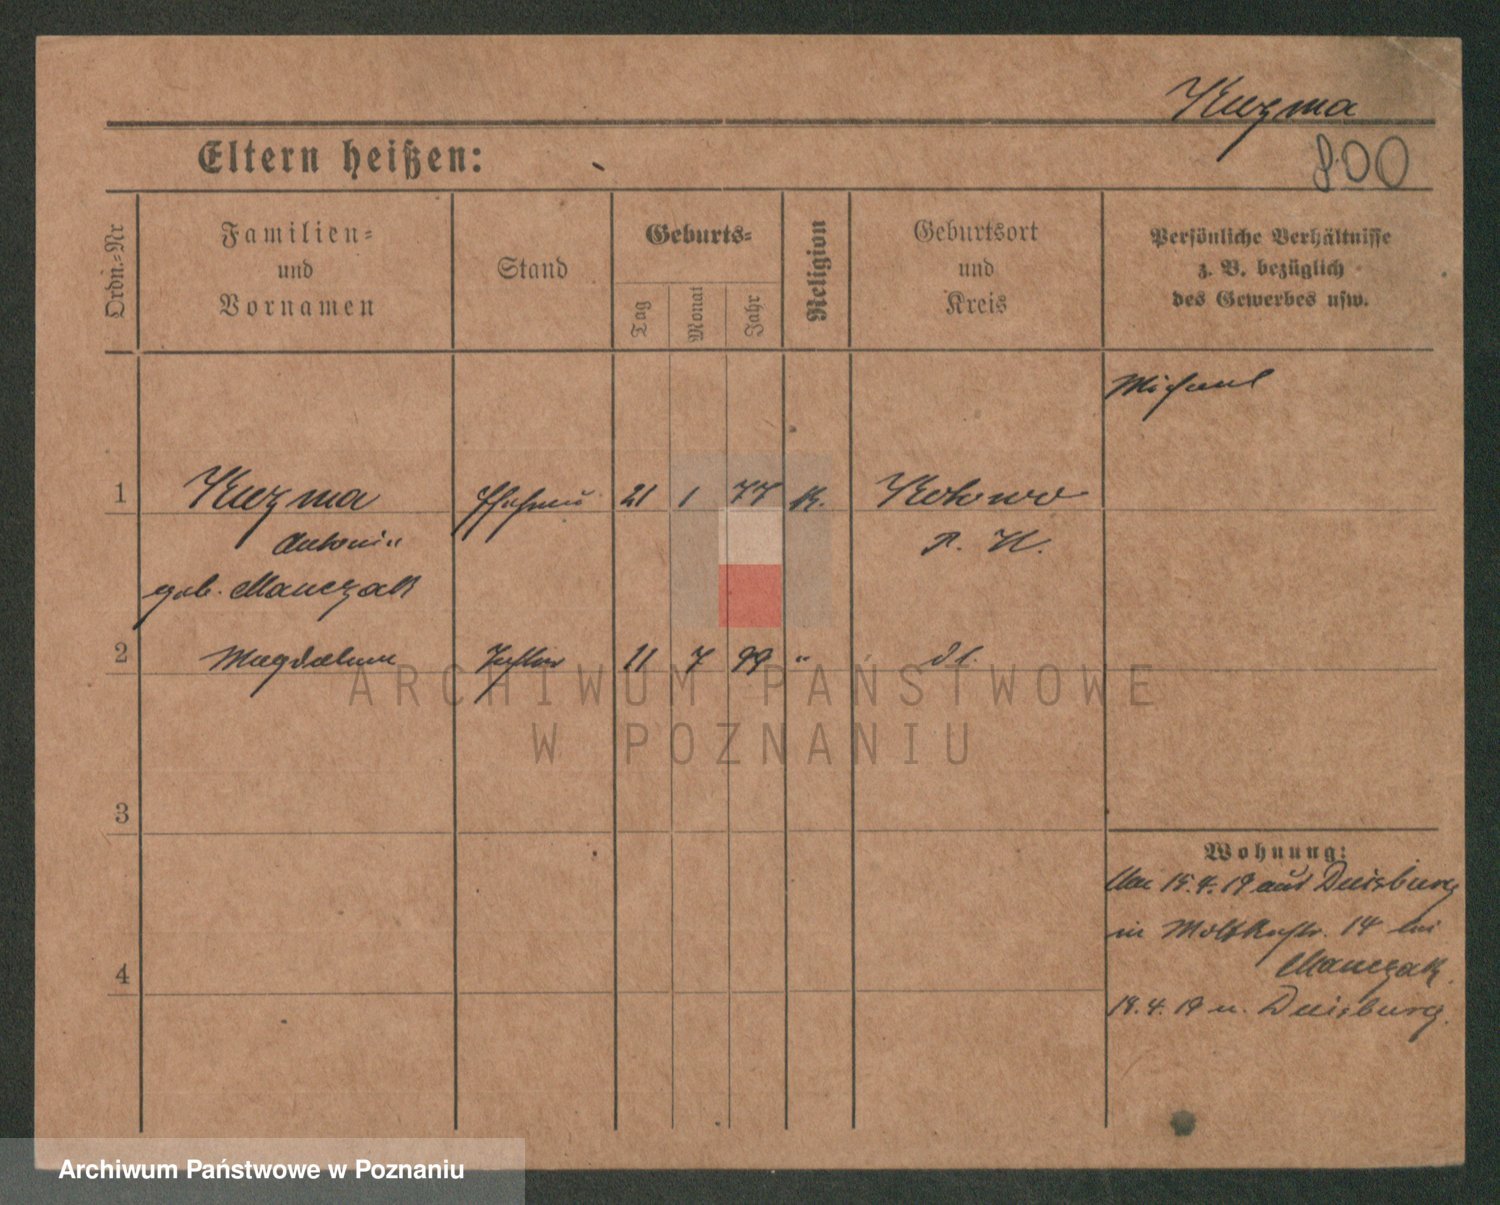 Kuzma
800
Eltern heißen:
Ordn.-Nr
Familien-
und
Vornamen
Stand
Geburts-
Tag
Monat
Jahr
Religion
Geburtsort
und
Kreis
Persönliche Verhältnisse
z. B. bezüglich
des Gewerbes usw.
Michael
1 Kuzma Ehefrau 21 1 77 K. Kotowo
Antonie P. W.
geb. Manczak
2 Magdalene Tochter 11 7 99 "
3
Wohnung:
Am 15.4.19 aus Duisburg
in Moltkestr. 14 bei
Manczak
4
18.4.19 n. Duisburg.
ARCHIWUM PAŃSTWOWE
W POZNANIU
Archiwum Państwowe w Poznaniu